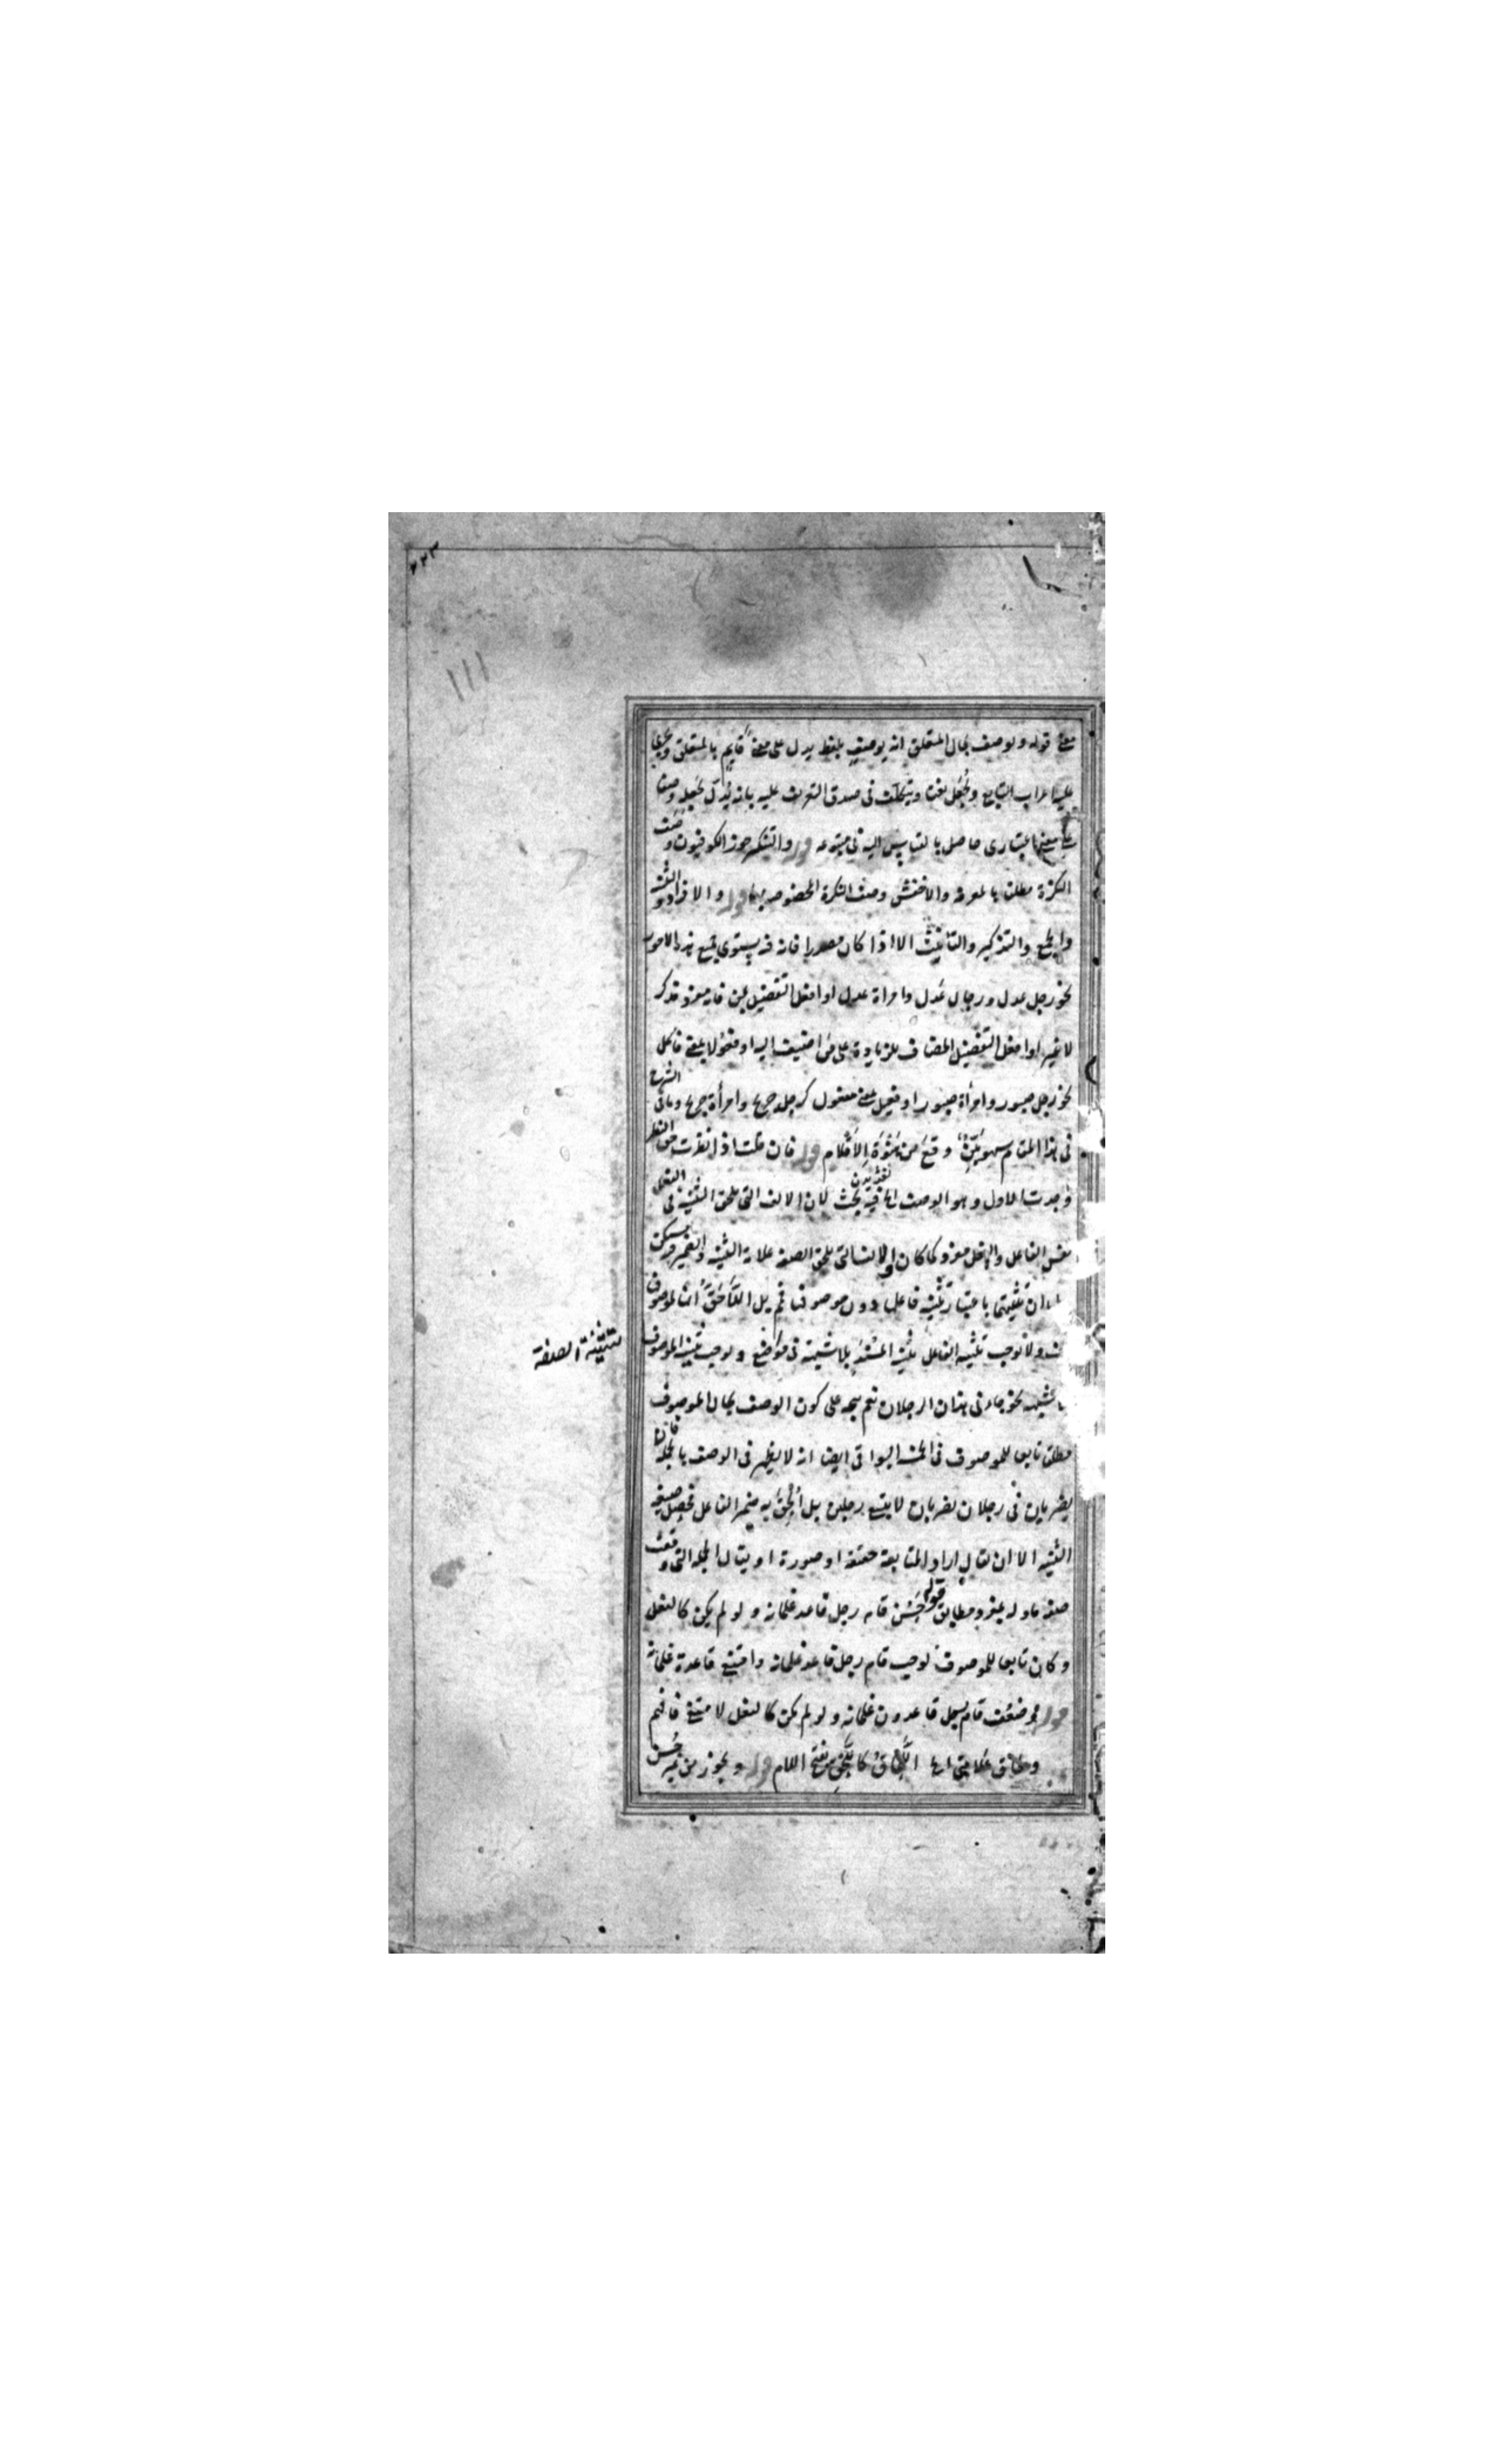 ٢٢٣
معنى قوله ويوصف بحال المتعلق انه يوصف بلفظ يدل على معنى قايم بالمتعلق ويجرى
عليه اعراب التابع ويجعل نعتا ويتكلف فى صدق التعريف عليه بانه يدل بجعله وصفا
على معنى اعتبارى حاصل بالقياس اليه فى متبوعه قوله والتنكير جوز الكوفيون وصف
النكرة مطلقا بالمعرفة والاخفش وصف النكرة المخصوصة بها قوله والافراد والتثنية
والجمع والتذكير والتأنيث الا اذا كان مصدرا فانه قد يستوى جميع هذه الامور
نحو رجل عدل ورجال عدل وامراة عدل او افعل التفضيل بمن فانه مفرد مذكر
لا غير او افعل التفضيل المضاف للزيادة على من اضيف اليه او فعولا بمعنى فاعل
نحو رجل صبور وامرأة صبور او فعيل بمعنى مفعول كرجل جريح وامرأة جريح وما فى الشرح
فى هذا المقام سهو بين وقع من هفوة الاقلام قوله فان قلت اذا نظرت حق النظر
وجدت الاول وهو الوصف الخ فيه بحث لان الالف التى تلحق التثنية فى الفعل
نفس الفاعل والفعل مفرد كما كان والالف التى تلحق الصفة علامة التثنية والضمير مستكن
ان تثنيتها باعتبار تثنية فاعلها دون موصوفها فم بل اللاحق ان الموصوف
ولا توجب تثنية الفاعل تثنية المسند بلا شبهة فى مواضع ويوجب تثنية الموصوف
تثنية الصفة
نحو جاءنى هذان الرجلان نعم يتجه على كون الوصف بحال الموصوف
مطلقا تابعا للموصوف فى الخمسة البواقى ايضا انه لا يظهر فى الوصف بالجملة فان
يضربان فى رجلان يضربان لا يتبع رجلين بل ألحق به ضمير الفاعل فحصل صيغة
التثنية الا ان يقال اراد المتابعة حقيقة او صورة او يقال الجملة التى وقعت
صفة ماولة بمفرد مطابق قوله حسن قام رجل قاعد غلمانه ولو لم يكن كالفعل
وكان تابعا للموصوف لوجب قام رجل قاعد غلمانه وامتنع قاعدة غلمانه
قوله وضعف قام رجل قاعدون غلمانه ولو لم يكن كالفعل لامتنع فافهم
اللام قوله ويجوز من غير حسن